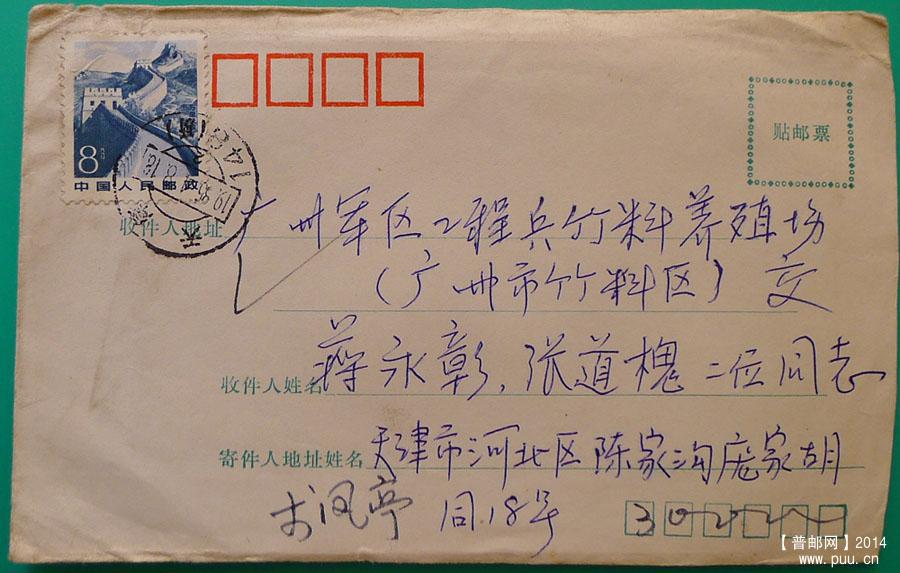 8分
中国人民邮政
贴邮票
收件人地址 广州军区工程兵竹料养殖场
(广州市竹料区) 交
收件人姓名 蒋永彰、张道槐二位同志
寄件人地址姓名 天津市河北区陈家沟庞家胡
同18号
凤亭
【普邮网】2014
www.puu.cn